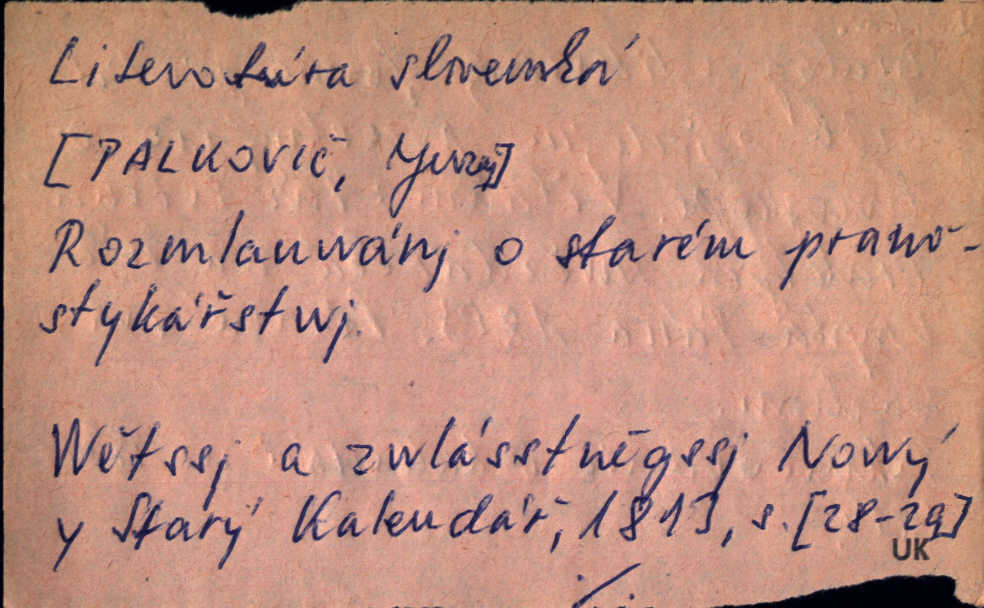 Literatúra slovenská
[PALKOVIČ, Juraj]
Rozmlauwánj o starém prano-
stykářstwj.
Wětssj a zwlásstněgssj Nowý
y Starý Kalendář, 1813, s. [28-29]
UK